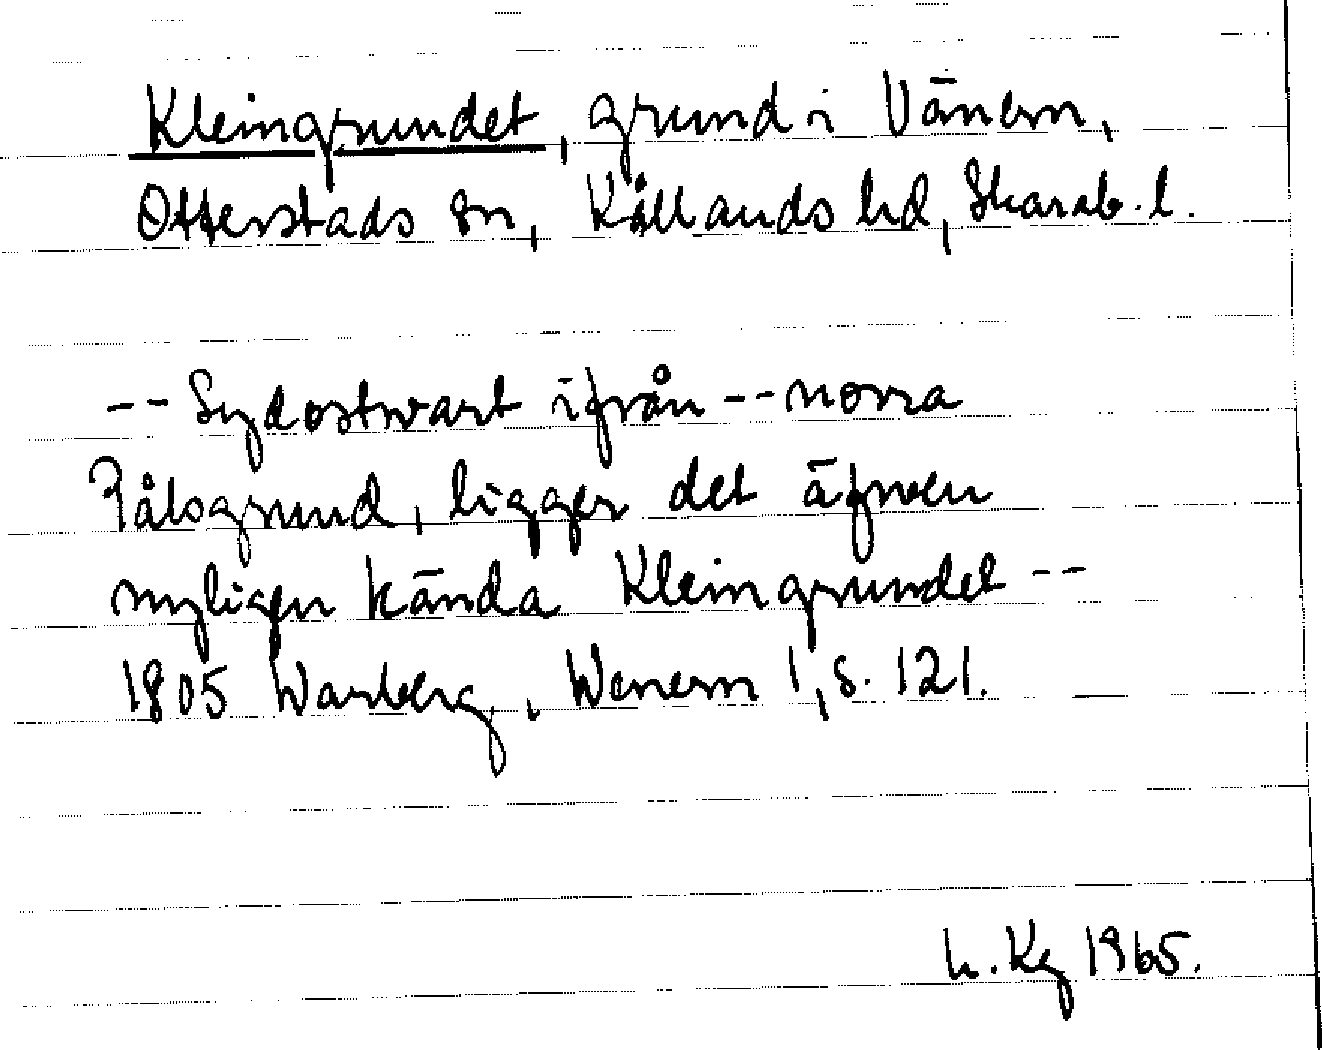 Kleingrundet, grund i Vänern,
Otterstads sn, Kållands hd, Skarab. l.
-- Sydostwart ifrån -- norra
Pålsgrund, ligger det äfwen
nyligen kända Kleingrundet --
1805 Warberg, Wenern 1, s. 121.
h. Kg 1965.